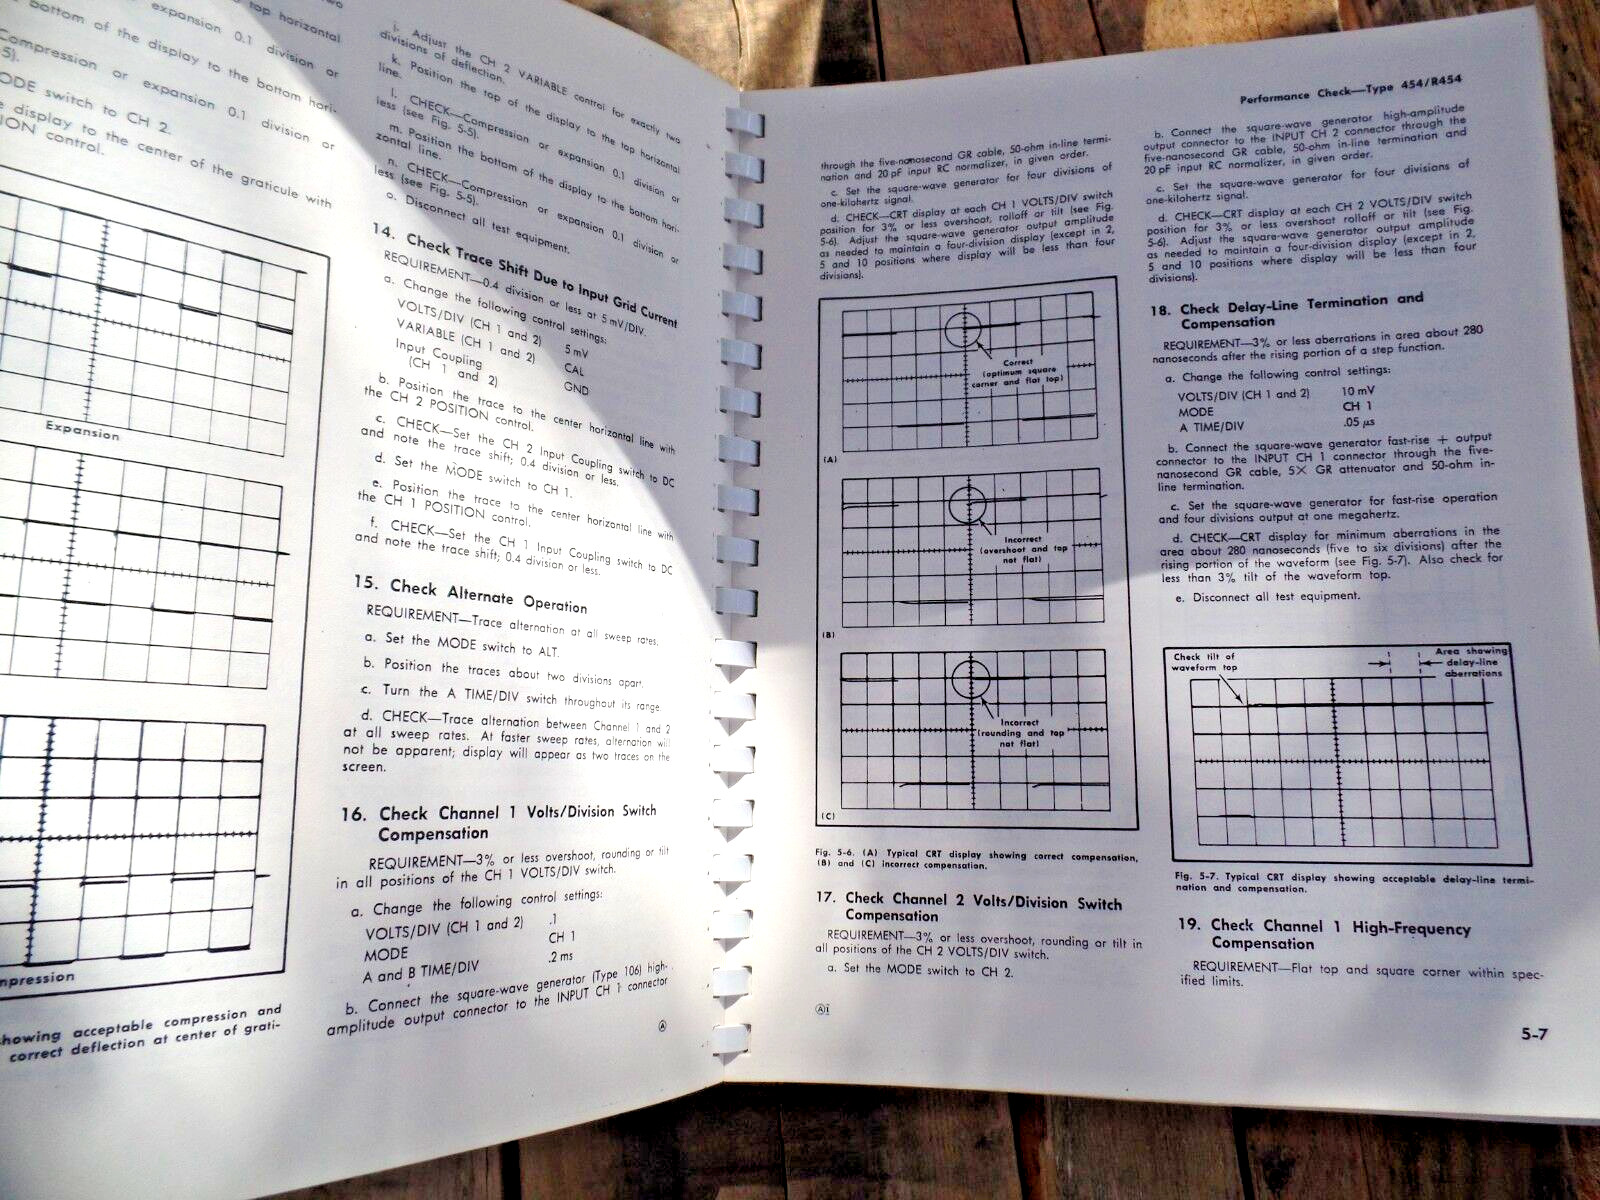 expansion 0.1 division or
bottom of the display to the bottom hori-
Compression or expansion 0.1 division or
5).
ODE switch to CH 2.
display to the center of the graticule with
ION control.
Expansion
mpression
howing acceptable compression and
correct deflection at center of grati-
i. Adjust the CH 2 VARIABLE control for exactly two
divisions of deflection.
k. Position the top of the display to the top horizontal
line.
l. CHECK—Compression or expansion 0.1 division or
less (see Fig. 5-5).
m. Position the bottom of the display to the bottom hori-
zontal line.
n. CHECK—Compression or expansion 0.1 division or
less (see Fig. 5-5).
o. Disconnect all test equipment.
14. Check Trace Shift Due to Input Grid Current
REQUIREMENT—0.4 division or less at 5 mV/DIV.
a. Change the following control settings:
VOLTS/DIV (CH 1 and 2) 5 mV
VARIABLE (CH 1 and 2) CAL
Input Coupling
(CH 1 and 2) GND
b. Position the trace to the center horizontal line with
the CH 2 POSITION control.
c. CHECK—Set the CH 2 Input Coupling switch to DC
and note the trace shift; 0.4 division or less.
d. Set the MODE switch to CH 1.
e. Position the trace to the center horizontal line with
the CH 1 POSITION control.
f. CHECK—Set the CH 1 Input Coupling switch to DC
and note the trace shift; 0.4 division or less.
15. Check Alternate Operation
REQUIREMENT—Trace alternation at all sweep rates.
a. Set the MODE switch to ALT.
b. Position the traces about two divisions apart.
c. Turn the A TIME/DIV switch throughout its range.
d. CHECK—Trace alternation between Channel 1 and 2
at all sweep rates. At faster sweep rates, alternation will
not be apparent; display will appear as two traces on the
screen.
16. Check Channel 1 Volts/Division Switch
Compensation
REQUIREMENT—3% or less overshoot, rounding or tilt
in all positions of the CH 1 VOLTS/DIV switch.
a. Change the following control settings:
VOLTS/DIV (CH 1 and 2) .1
MODE CH 1
A and B TIME/DIV .2 ms
b. Connect the square-wave generator (Type 106) high-
amplitude output connector to the INPUT CH 1 connector
Ⓐ
Performance Check—Type 454/R454
through the five-nanosecond GR cable, 50-ohm in-line termi-
nation and 20 pF input RC normalizer, in given order.
c. Set the square-wave generator for four divisions of
one-kilohertz signal.
d. CHECK—CRT display at each CH 1 VOLTS/DIV switch
position for 3% or less overshoot, rolloff or tilt (see Fig.
5-6). Adjust the square-wave generator output amplitude
as needed to maintain a four-division display (except in 2,
5 and 10 positions where display will be less than four
divisions).
Correct
(optimum square
corner and flat top)
(A)
Incorrect
(overshoot and top
not flat)
(B)
Incorrect
(rounding and top
not flat)
(C)
Fig. 5-6. (A) Typical CRT display showing correct compensation,
(B) and (C) incorrect compensation.
17. Check Channel 2 Volts/Division Switch
Compensation
REQUIREMENT—3% or less overshoot, rounding or tilt in
all positions of the CH 2 VOLTS/DIV switch.
a. Set the MODE switch to CH 2.
b. Connect the square-wave generator high-amplitude
output connector to the INPUT CH 2 connector through the
five-nanosecond GR cable, 50-ohm in-line termination and
20 pF input RC normalizer, in given order.
c. Set the square-wave generator for four divisions of
one-kilohertz signal.
d. CHECK—CRT display at each CH 2 VOLTS/DIV switch
position for 3% or less overshoot rolloff or tilt (see Fig.
5-6). Adjust the square-wave generator output amplitude
as needed to maintain a four-division display (except in 2,
5 and 10 positions where display will be less than four
divisions).
18. Check Delay-Line Termination and
Compensation
REQUIREMENT—3% or less aberrations in area about 280
nanoseconds after the rising portion of a step function.
a. Change the following control settings:
VOLTS/DIV (CH 1 and 2) 10 mV
MODE CH 1
A TIME/DIV .05 µs
b. Connect the square-wave generator fast-rise + output
connector to the INPUT CH 1 connector through the five-
nanosecond GR cable, 5X GR attenuator and 50-ohm in-
line termination.
c. Set the square-wave generator for fast-rise operation
and four divisions output at one megahertz.
d. CHECK—CRT display for minimum aberrations in the
area about 280 nanoseconds (five to six divisions) after the
rising portion of the waveform (see Fig. 5-7). Also check for
less than 3% tilt of the waveform top.
e. Disconnect all test equipment.
Check tilt of
waveform top
Area showing
delay-line
aberrations
Fig. 5-7. Typical CRT display showing acceptable delay-line termi-
nation and compensation.
19. Check Channel 1 High-Frequency
Compensation
REQUIREMENT—Flat top and square corner within spec-
ified limits.
5-7